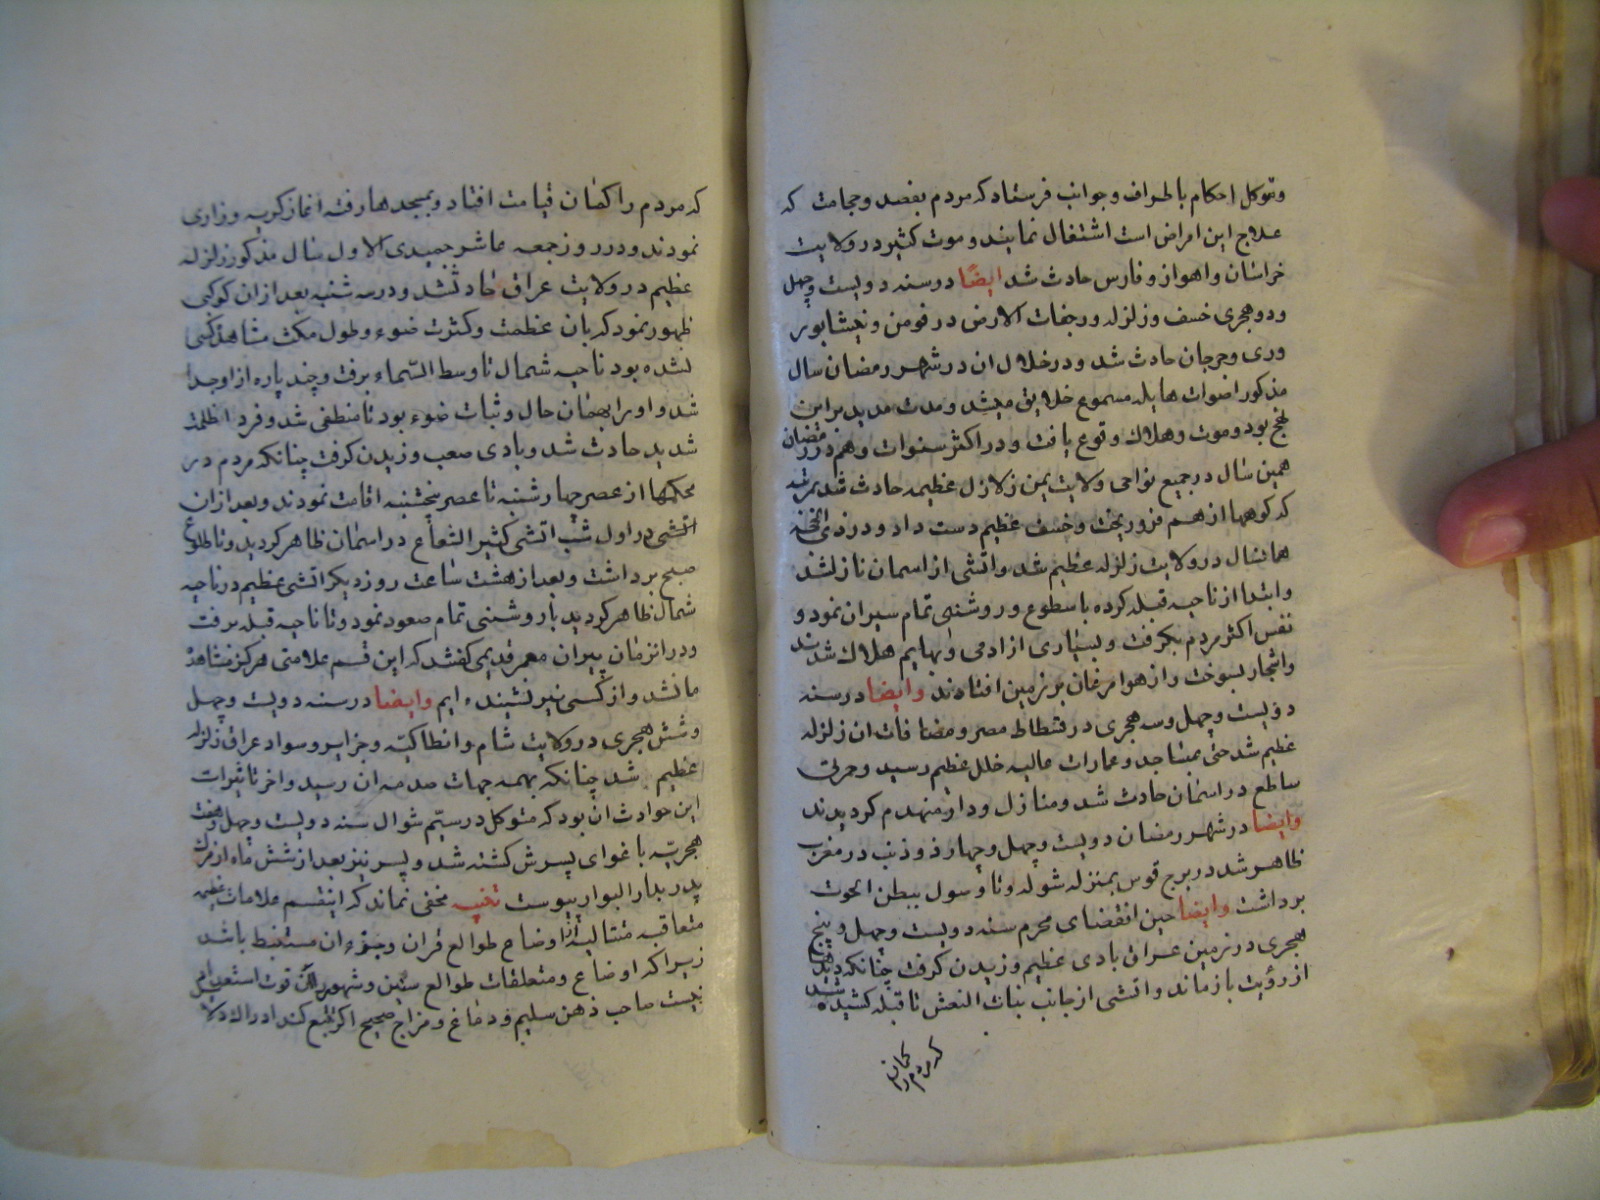 ومتوکل احکام باطراف و جوانب فرستاد که مردم بفصد و حجامت که
علاج این امراض است اشتغال نمایند و موت کثیر در ولایت
خراسان و اهواز و فارس حادث شد ایضًا در سنه دویست و چهل
و دو هجری خسف و زلزله و رجفات الارض در قومس و نیشابور
و ری و جرجان حادث شد و در خلال ان در شهر رمضان سال
مذکور اصوات هایله مسموع خلایق میشد و مدت مدید بر این
نهج بود و موت و هلاک وقوع یافت و در اکثر سنوات و هم در رمضان
همین سال در جمیع نواحی ولایت یمن زلازل عظیمه حادث شد بمرتبه
که کوهها از هم فروریخت و خسف عظیم دست داد و در ذی الحجه
همانسال در ولایت زلزله عظیم شد و اتشی از اسمان نازلشد
و ابتدا از ناحیه قبله کرده با سطوع و روشنی تمام سیران نمود و
نفس اکثر مردم بگرفت و بسیاری از ادمی و بهایم هلاک شدند
و اشجار بسوخت و از هوا مرغان بر زمین افتادند وایضا در سنه
دویست و چهل و سه هجری در فسطاط مصر و مضافات ان زلزله
عظیم شد حتی بمساجد و عمارات عالیه خلل عظیم رسید و حمرتی
ساطع در اسمان حادث شد و منازل و دار منهدم کردیدند
وایضا در شهر رمضان دویست و چهل و چهار ذو ذنب در مغرب
ظاهر شد در برج قوس بمنزله شوله و تا وصول ببطن الحوت
برداشت وایضا حین انقضای محرم سنه دویست و چهل و پنج
هجری در زمین عراق بادی عظیم وزیدن کرفت چنانکه دیده
از رؤیت بازماند و اتشی از جانب بنات النعش تا قبله کشیده شد
که مردم را کمان
که مردم را کمان قیامت افتاد و بمسجدها رفته اغاز کریه و زاری
نمودند و در روز جمعه عاشر جمیدی الاول سال مذکور زلزله
عظیم در ولایت عراق حادثشد و در سه شنبه بعد از ان کوکبی
ظهور نمود که بان عظمت و کثرت ضوء و طول مکث مشاهد کسی
نشده بود ناحیه شمال تا وسط السماء برفت و چند پاره از او جدا
شد و او را بهمان حال و ثبات ضوء بود تا منطفی شد و فردا ظلمت
شدید حادث شد و بادی صعب وزیدن کرفت چنانکه مردم در
محکمها از عصر چهارشنبه تا عصر پنجشنبه اقامت نمودند و بعد از ان
اتشی در اول شب اتشی کثیر الشعاع در اسمان ظاهر کردید و تا طلوع
صبح برداشت و بعد از هشت ساعت روز دیکر اتشی عظیم در ناحیه
شمال ظاهر کردید با روشنی تمام صعود نمود و تا ناحیه قبله برفت
و در انزمان پیران معمر قدیمی کفتند که این قسم علامتی هرکز مشاهده
ما نشد و از کسی نیز نشینده ایم وایضا در سنه دویست و چهل
و شش هجری در ولایت شام و انطاکیّه و جزایر و سواد عراق زلزله
عظیم شد چنانکه بهمه جهات صدمه ان رسید و اخر تاثیرات
این حوادث ان بود که متوکل در سیّم شوال سنه دویست و چهل و هفت
هجریّه باغوای پسرش کشته شد و پسر نیز بعد از شش ماه از مرک
پدر بدار البوار پیوست تنبیه مخفی نماند که اینقسم علامات عظیمه
متعاقبه متتالیه از اوضاع طوالع قران و جزء ان مستنبط باشد
زیرا که اوضاع و متعلقات طوالع سنین و شهور را ان قوت استعداد
نیست صاحب ذهن سلیم و دماغ و مزاج صحیح اکر تتبع کند ادراک